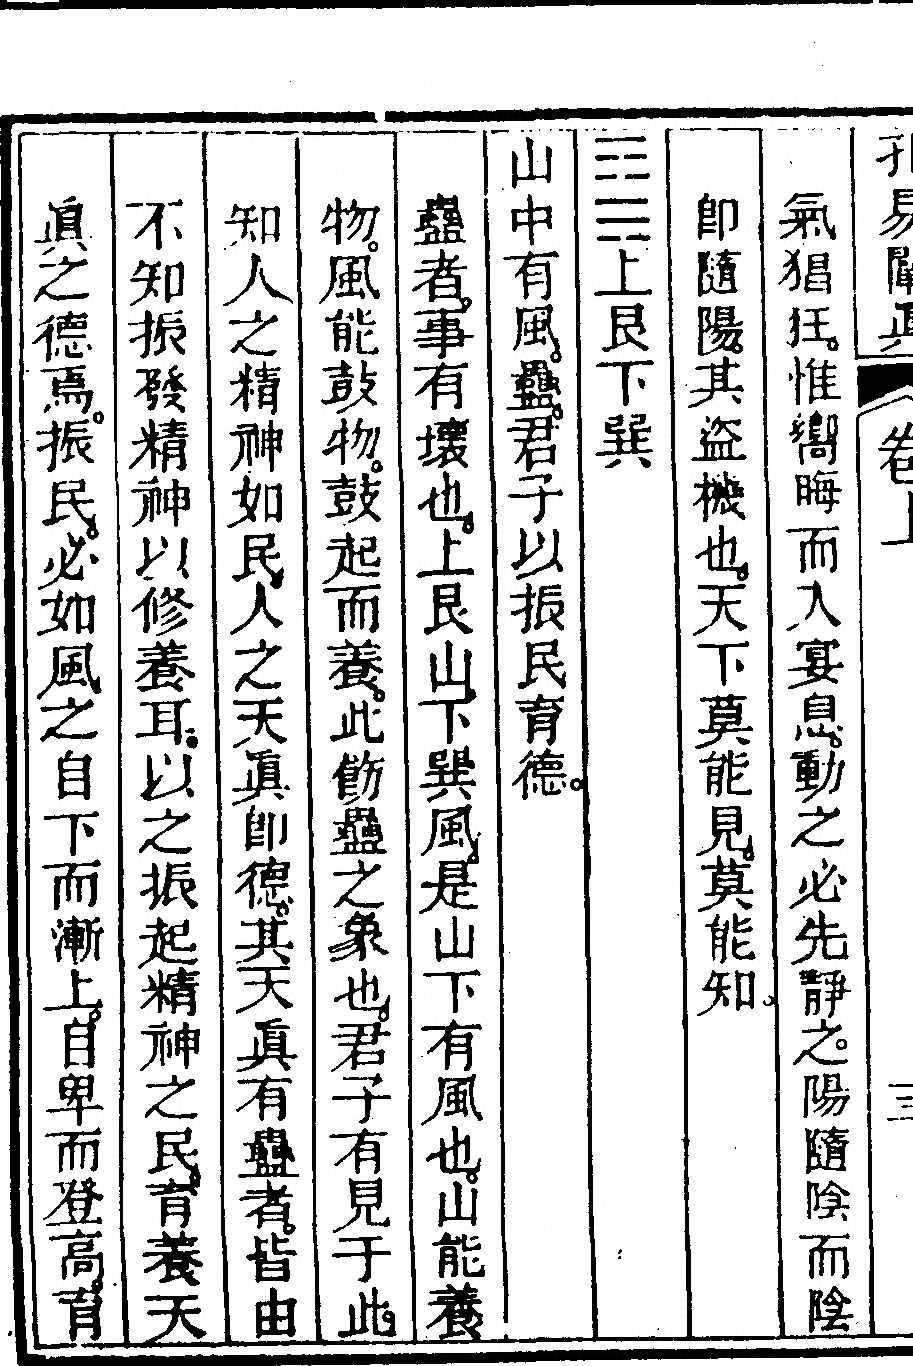 孔易闡真 卷上 三
氣猖狂。惟嚮晦而入宴息。動之必先靜之。陽隨陰而陰
即隨陽。其盜機也。天下莫能見。莫能知。
☶☴上艮下巽
山中有風。蠱。君子以振民育德。
蠱者。事有壞也。上艮山。下巽風。是山下有風也。山能養
物。風能鼓物。鼓起而養。此飭蠱之象也。君子有見于此。
知人之精神如民。人之天眞即德。其天眞有蠱者。皆由
不知振發精神以修養耳。以之振起精神之民。育養天
眞之德焉。振民。必如風之自下而漸上。自卑而登高。育